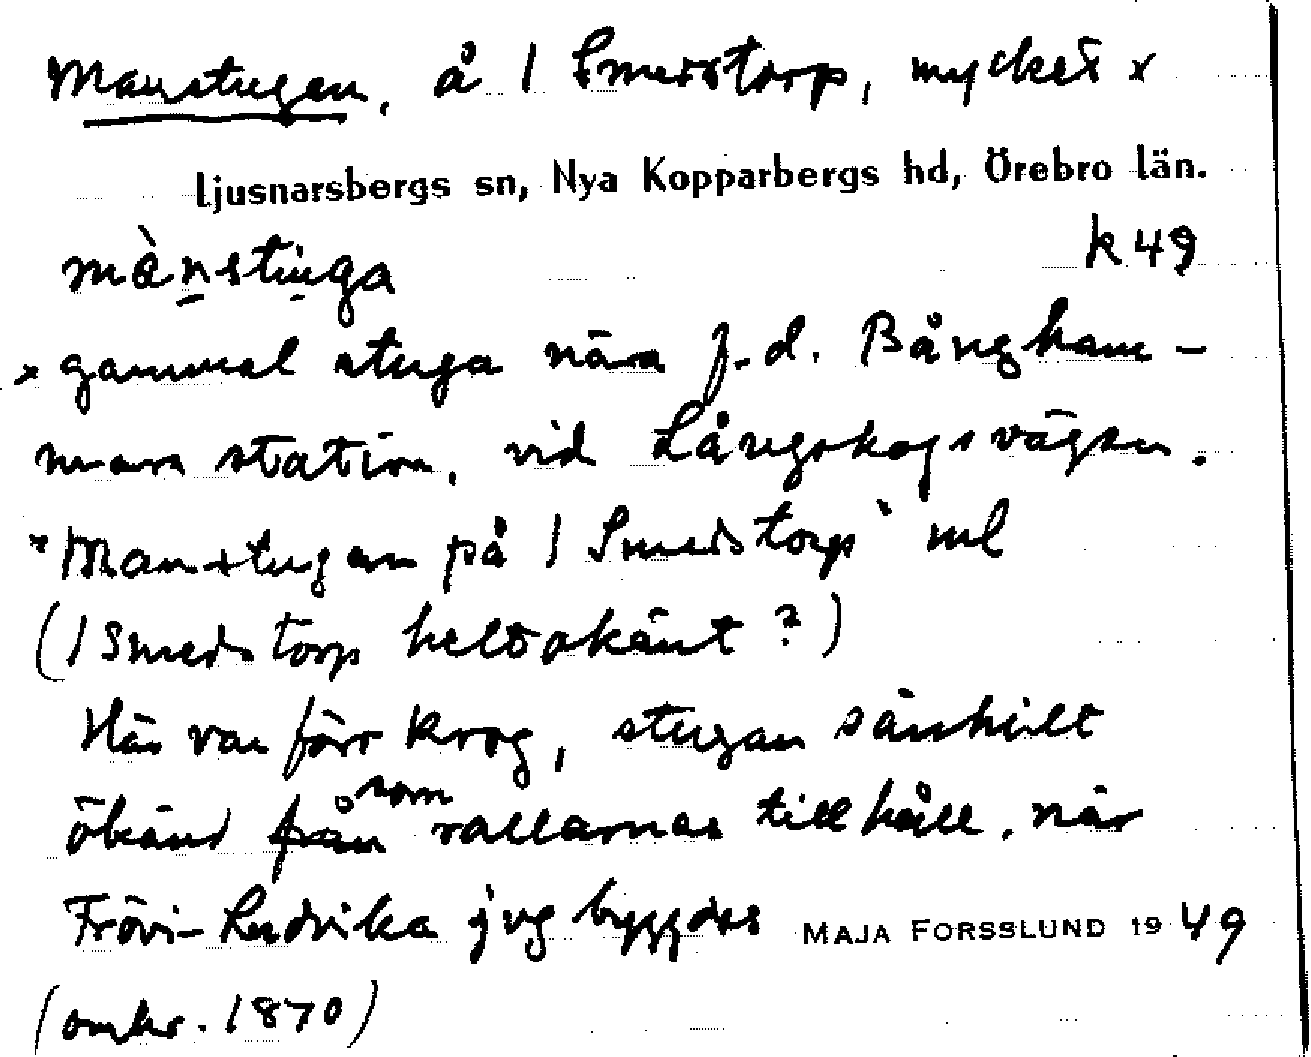 Manstugen, å 1 Smedstorp, mycket x
Ljusnarsbergs sn, Nya Kopparbergs hd, Örebro län.
mànstuga k 49
x gammal stuga nära f.d. Bångham-
mars station, vid Långskogsvägen.
"Manstugan på 1 Smedstorp" ml
(1 Smedstorp helt okänt?)
Här var förr krog, stugan särskilt
ökänd från som rallarnas tillhåll, när
Frövi-Ludvika jvg byggdes MAJA FORSSLUND 1949
(omkr. 1870)